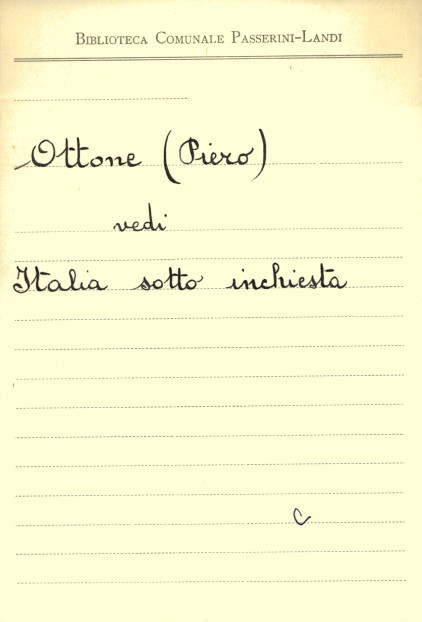 Biblioteca Comunale Passerini-Landi
Ottone (Piero)
vedi
Italia sotto inchiesta
C